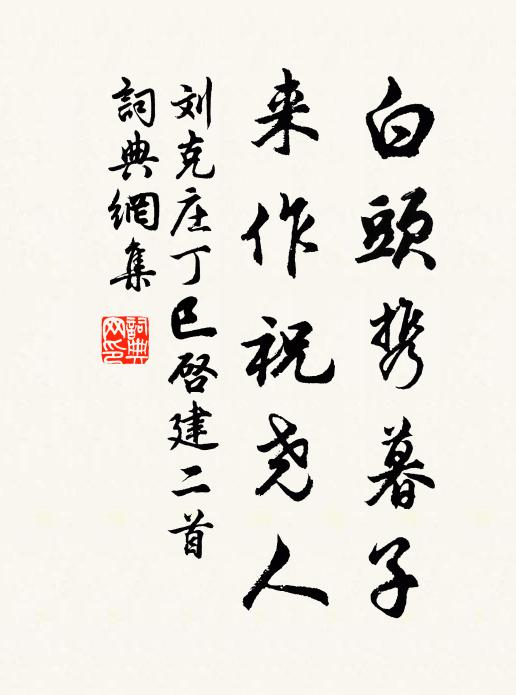 白頭携暮子
来作祝尧人
刘克庄丁巳啓建二首
詞典網集
詞典网印